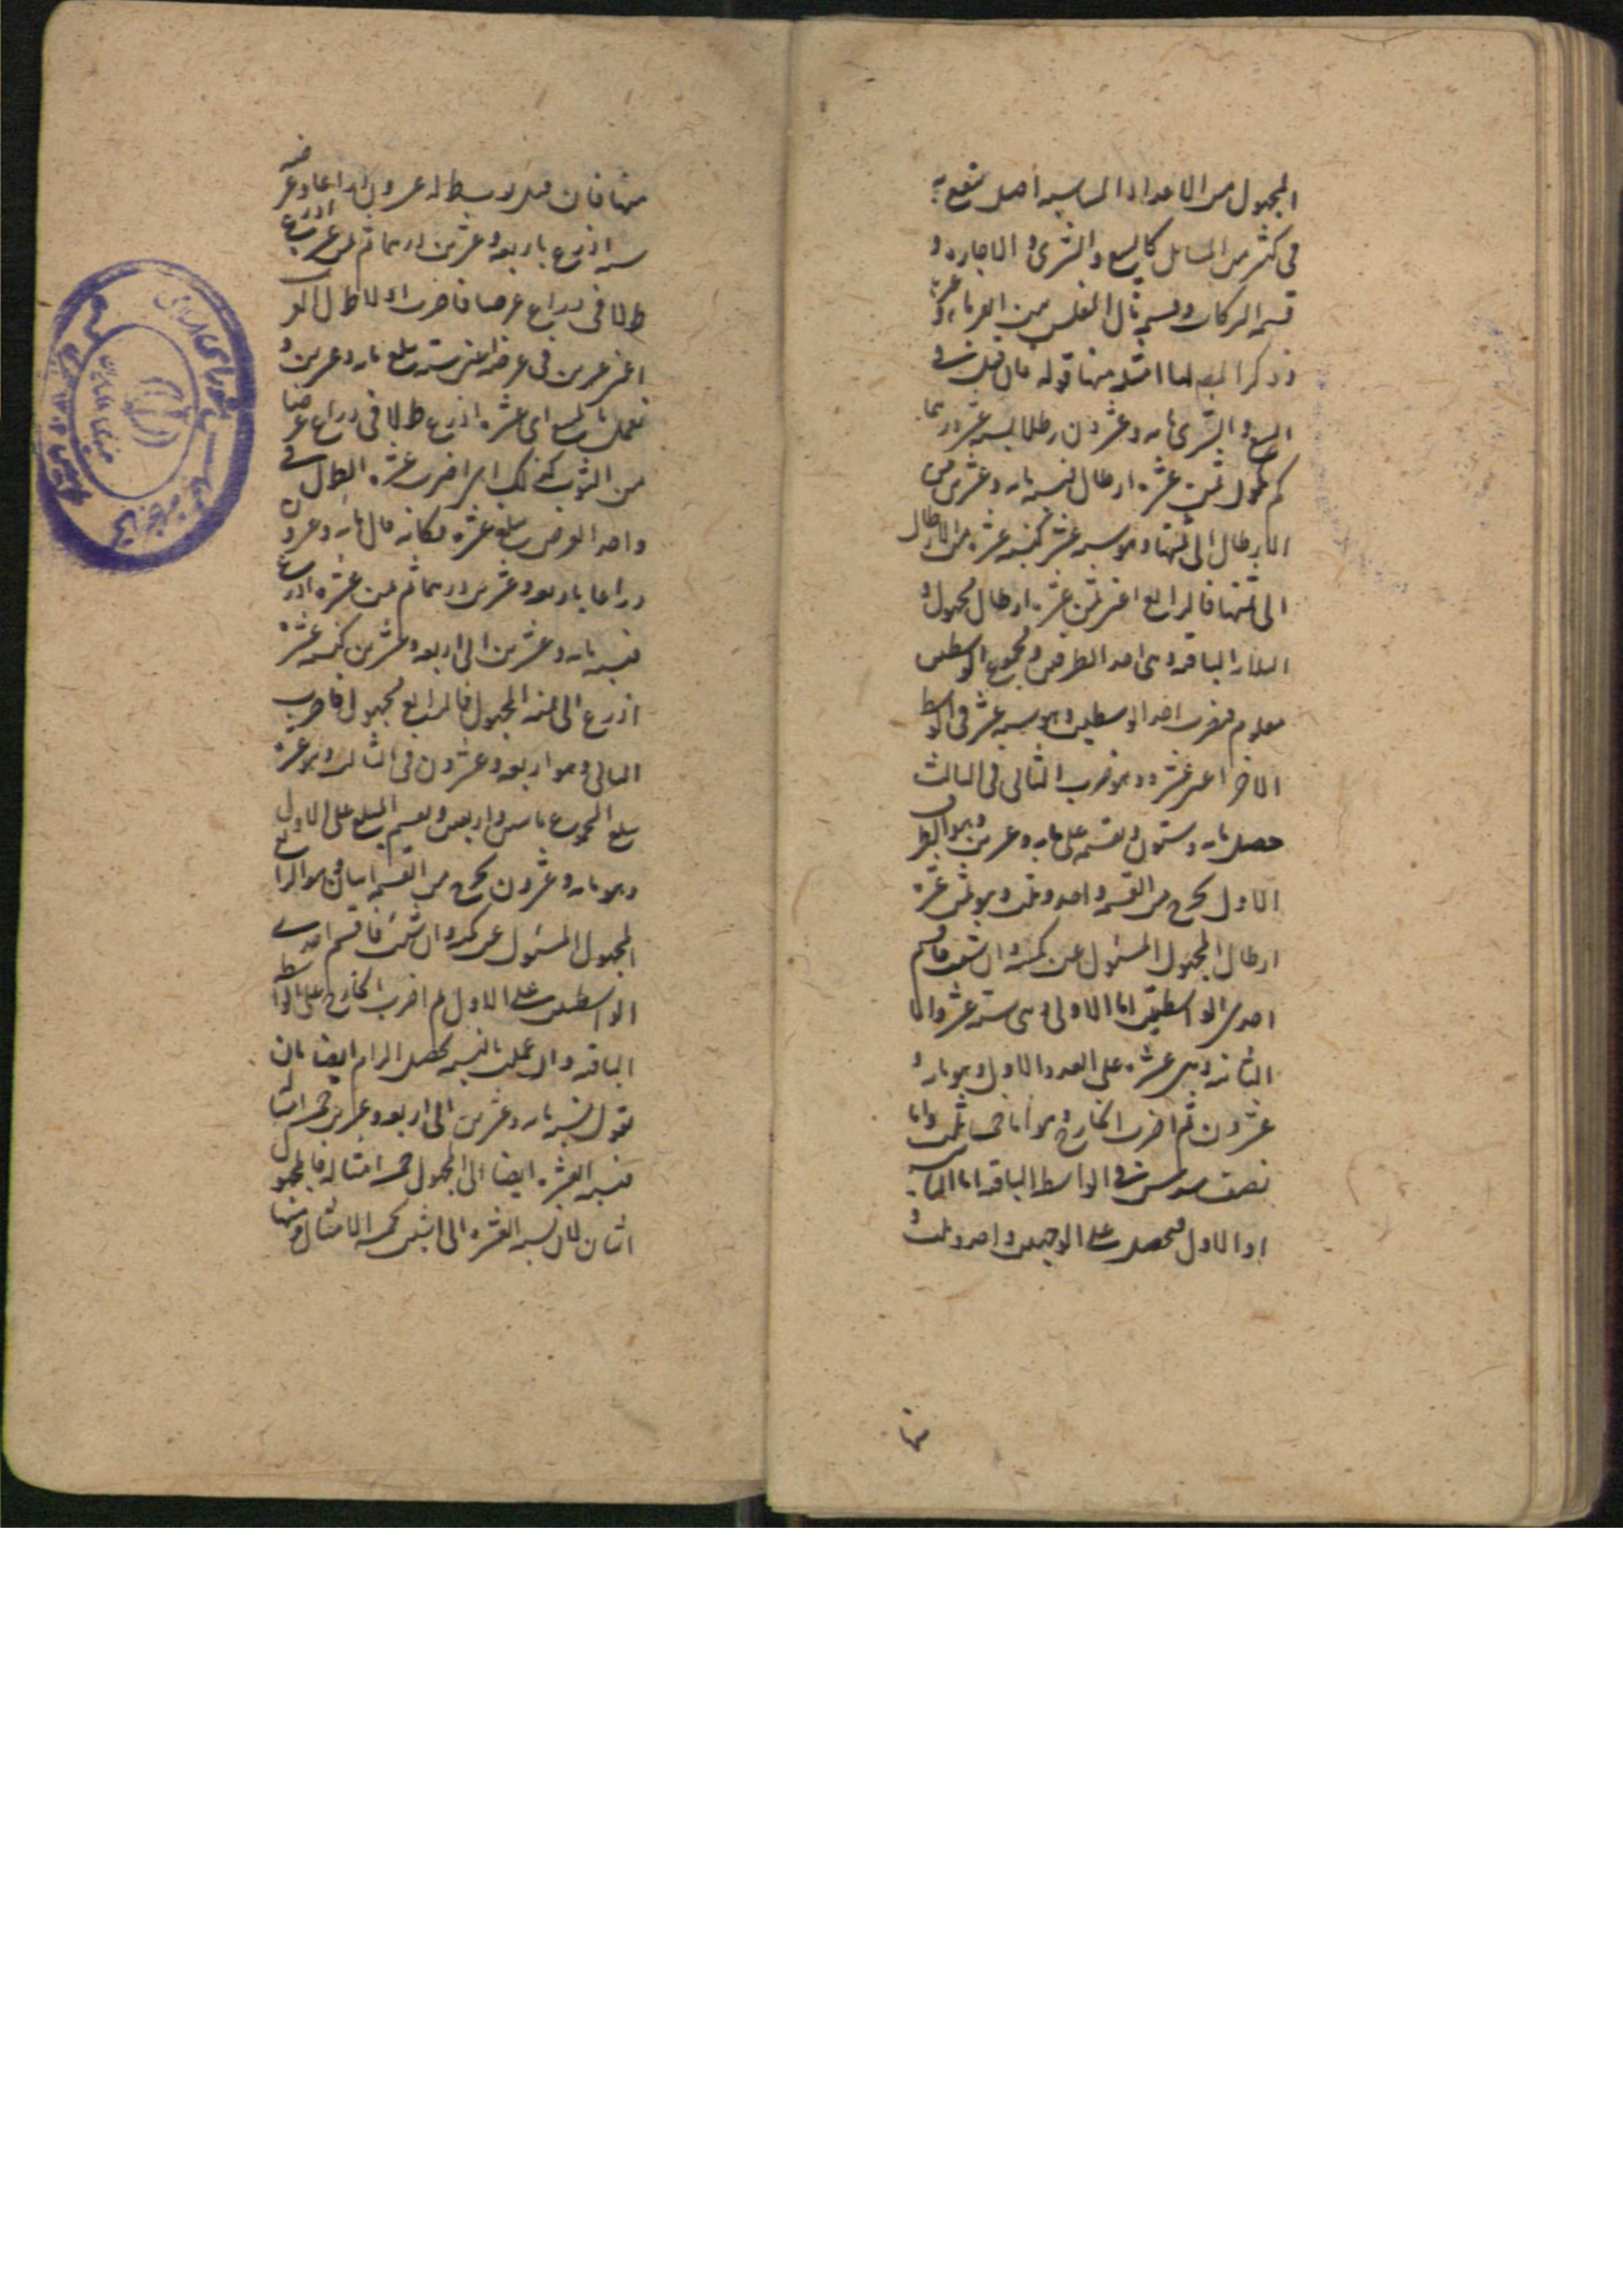 المجهول من الاعداد المتناسبه اصل ينتفع به
فى كثير من المسائل كالبيع والشرى والاجاره و
قسمه التركات وقسمه مال المفلس بين الغرماء و
وذكر المصـ لها امثله منها قوله فان قيل فى
البيع والشرى مايه وعشرون رطلا بسته عشر درهما
كم يكون ثمن عشره ارطال فنسبه مايه وعشرين من
الارطال الى ثمنها وهو سته عشر كنسبه عشره من الارطال
الى ثمنها فالرابع اعنى ثمن عشره ارطال مجهول و
الثلاثه الباقيه وهى احد الطرفين ومجموع الواسطتين
معلوم فنضرب احد الواسطتين وهو سته عشر فى الواسط
الاخر اعنى عشره وهو ضرب الثانى فى الثالث
حصل مايه وستون ونقسمه على مايه وعشرين وهو الطرف
الاول يخرج من القسمه واحد وثلث وهو ثمن عشره
ارطال المجهول المسئول عن كميته وان شئت فاقسم
احدى الواسطتين اما الاولى وهى سته عشر واما
الثانيه وهى عشره على العدد الاول وهو مايه و
عشرون ثم اضرب الخارج وهو اما خمسا ثلث واما
نصف سدس فى الواسط الباقيه اما الثانيه
او الاول فيحصل على الوجهين واحد وثلث و
منها
منها فان قيل ثوب بسط طوله عشرون ذراعا وعرضه
سته اذرع باربعه وعشرين درهما كم ثمن عشره اذرع
طولا فى ذراع عرضا فاضرب اولا طول الثوب
اعنى عشرين فى عرضه اعنى سته يبلغ مايه وعشرين و
تعمل بالمبيع اى عشره اذرع طولا فى ذراع عرضا
من الثوب كذلك اى اضرب عشره الطول فى
واحد العرض يبلغ عشره فكانه قال مايه وعشرون
ذراعا باربعه وعشرين درهما كم ثمن عشره اذرع
فنسبه مايه وعشرين الى اربعه وعشرين كنسبه عشره
اذرع الى ثمنه المجهول فالرابع مجهول فاضرب
الثانى وهو اربعه وعشرون فى الثالث وهو عشره
يبلغ المجموع مايتين واربعين ونقسم المبلغ على الاول
وهو مايه وعشرون يخرج من القسمه اثنان وهو الرابع
المجهول المسئول عن كميته وان شئت فاقسم احدى
الواسطتين على الاول ثم اضرب الخارج على الواسطه
الباقيه وان عملت بالنسبه يحصل المرام ايضا بان
تقول نسبه مايه وعشرين الى اربعه وعشرين خمسه امثال
فنسبه العشره ايضا الى المجهول خمسه امثاله فالمجهول
اثنان لان نسبه العشره الى اثنين بخمسه الامثال ومنها